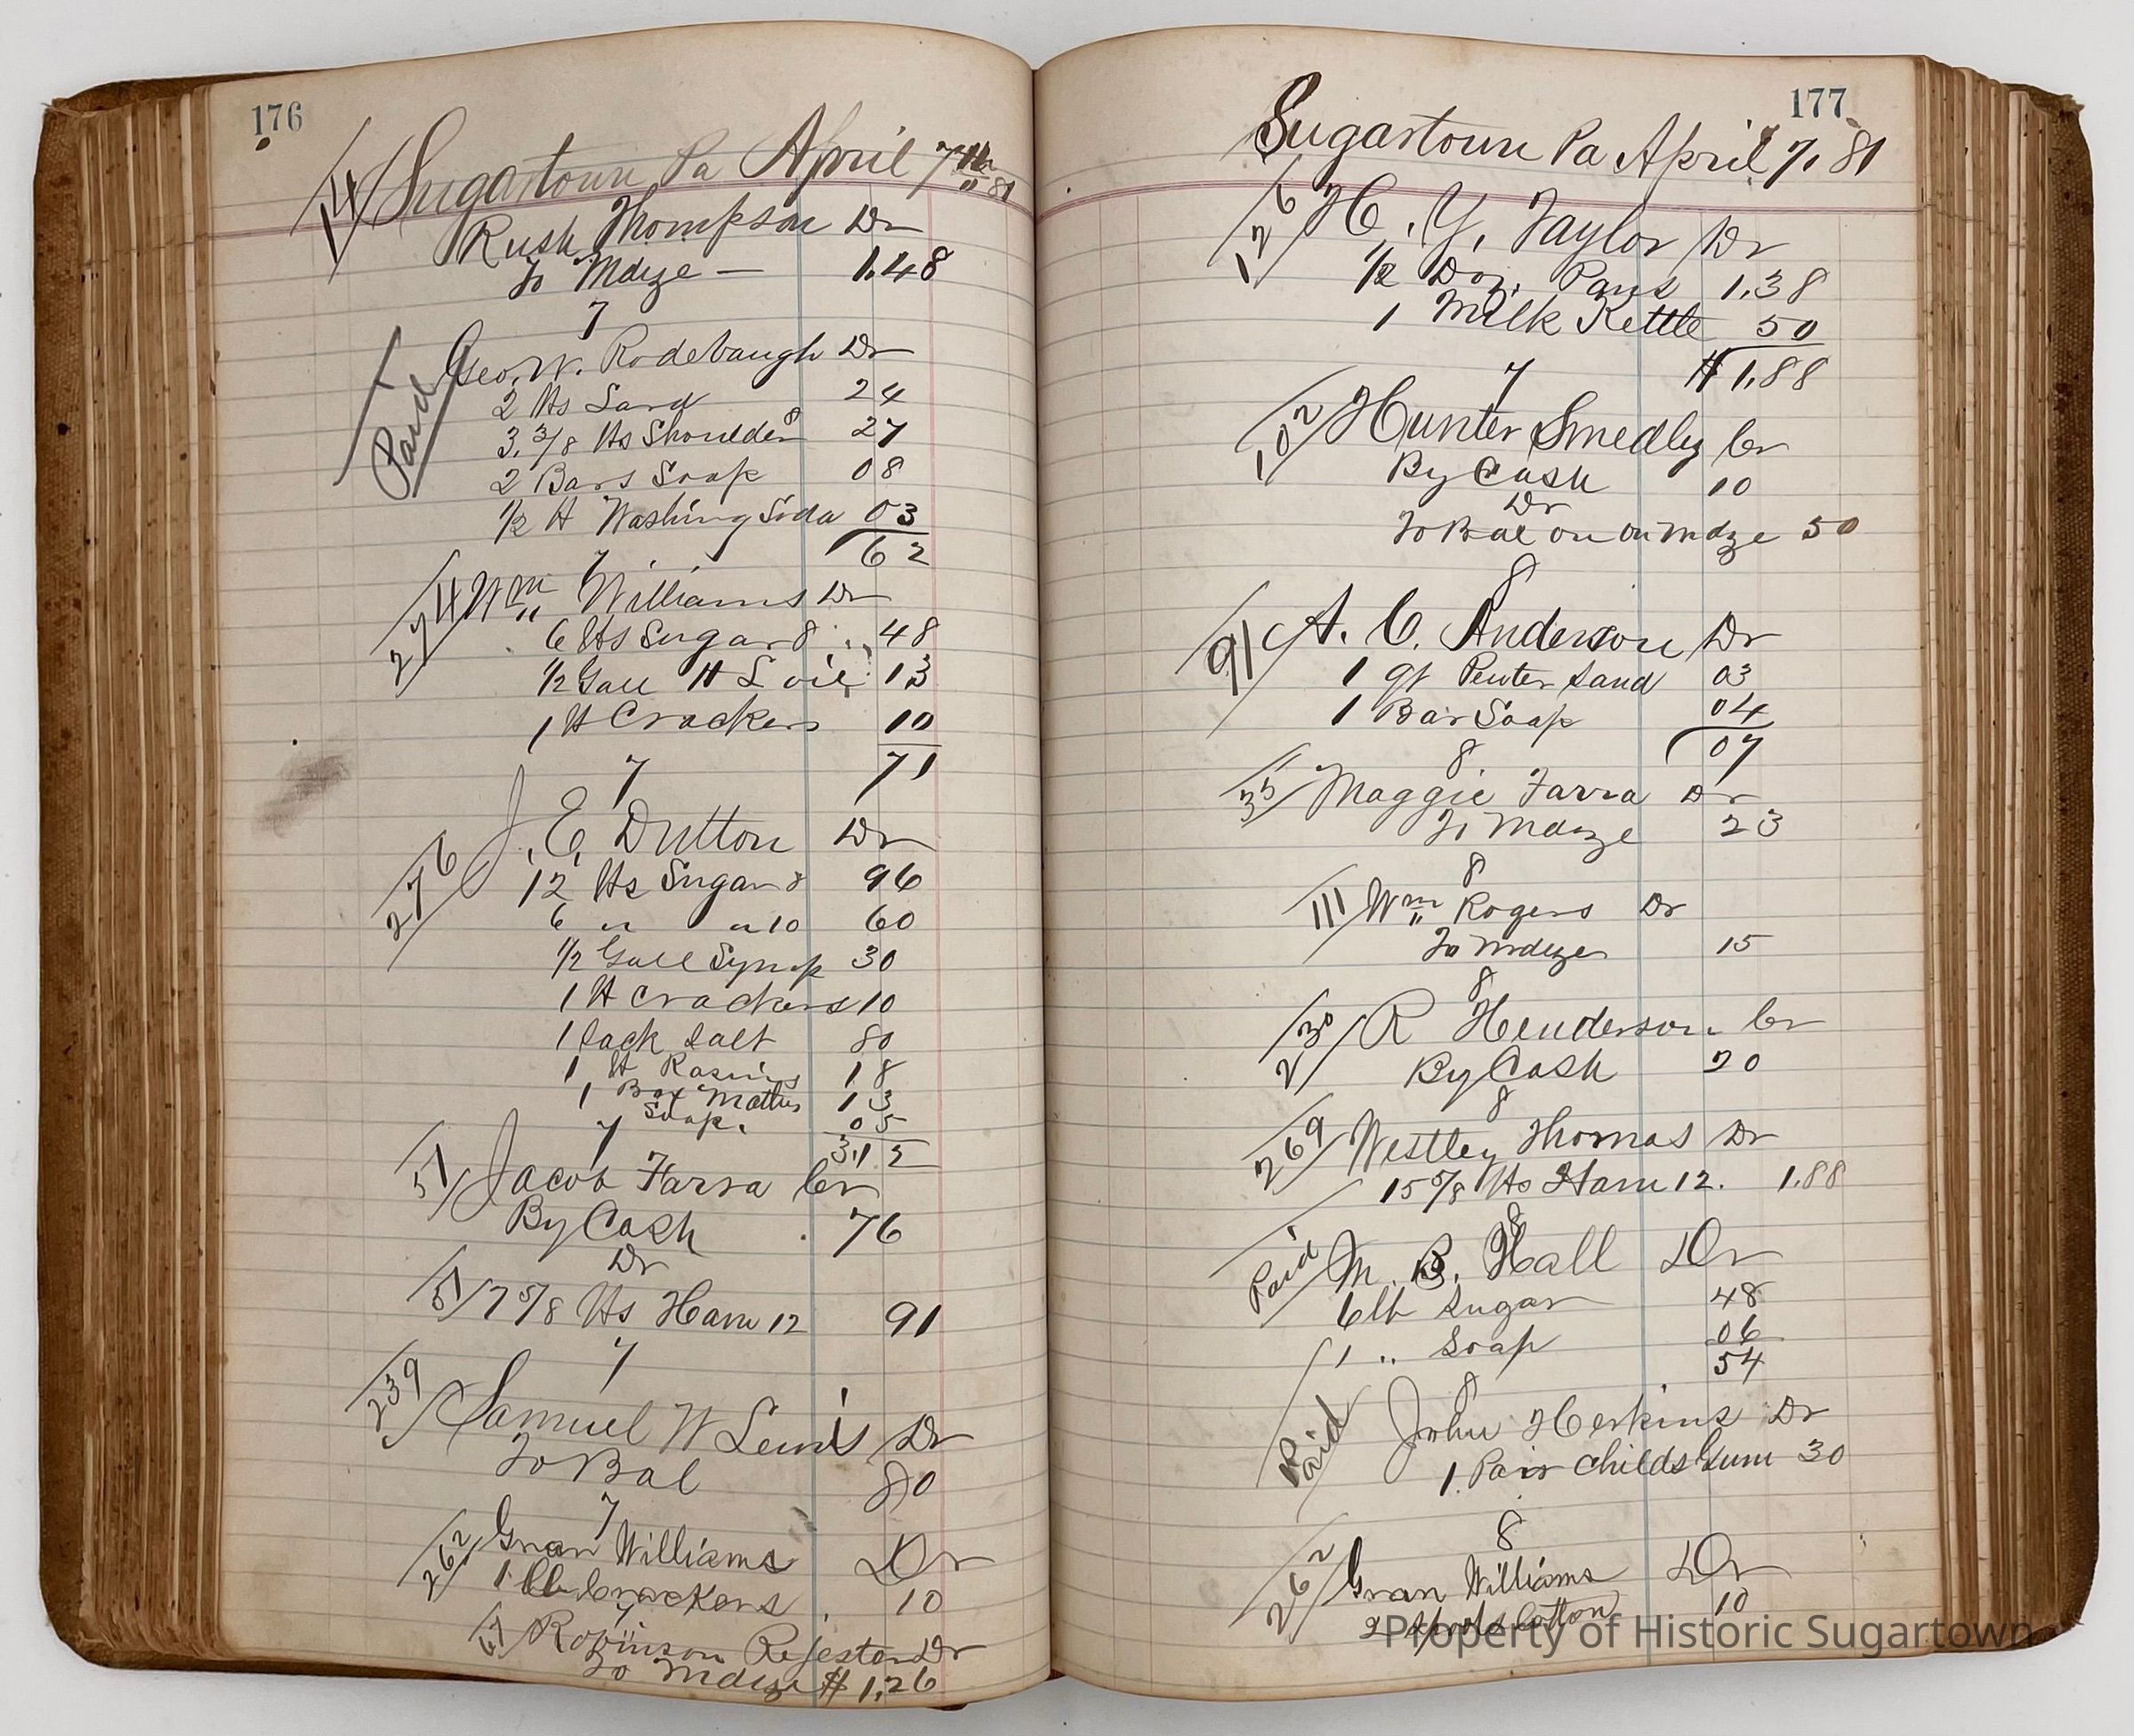 176
14 Sugartown Pa April 7th 81
Rush Thompson Dr
To Mdze — 1.48
7
Paid Geo. W. Rodebaugh Dr
2 lbs Lard 24
3, 3/8 lbs Shoulder 8 27
2 Bars Soap 08
1/2 lb Washing Soda 03
62
7
274 Wm Williams Dr
6 lbs Sugar 8 48
1/2 Gall H L oil 13
1 lb Crackers 10
71
7
276 J. E. Dutton Dr
12 lbs Sugar 8 96
6 " " 10 60
1/2 Gall Syrup 30
1 lb Crackers 10
1 Sack Salt 80
1 lb Rasins 18
1 Box Mattus 13
Soap. 05
7
3.12
51 Jacob Farra Cr
By Cash 76
Dr
51 7 5/8 lbs Ham 12 91
7
239 Samuel W Lewis Dr
To Bal 80
7
262 Gran Williams Dr
1 lb Crackers 10
7
67 Robinson Dr
To Mdze $ 1,26
177
Sugartown Pa April 7, 81
126 H. Y. Taylor Dr
1/2 Doz. Pans 1.38
1 Milk Kettle 50
$ 1.88
7
102 Hunter Smedley Cr
By Cash 10
Dr
To Bal on on Mdze 50
8
91 A. C. Anderson Dr
1 qt Penter Sand 03
1 Bar Soap 04
07
8
35 Maggie Farra Dr
To Mdze 23
8
111 Wm Rogers Dr
To Mdze 15
8
230 R Henderson Cr
By Cash 20
8
269 Westley Thomas Dr
15 5/8 lbs Ham 12. 1.88
8
Paid M. B. Hall Dr
6 lb Sugar 48
1 " Soap 06
54
8
Paid John Herkins Dr
1 Pair Childs Gum 30
8
262 Gran Williams Dr
2 Spools Cotton 10
Property of Historic Sugartown